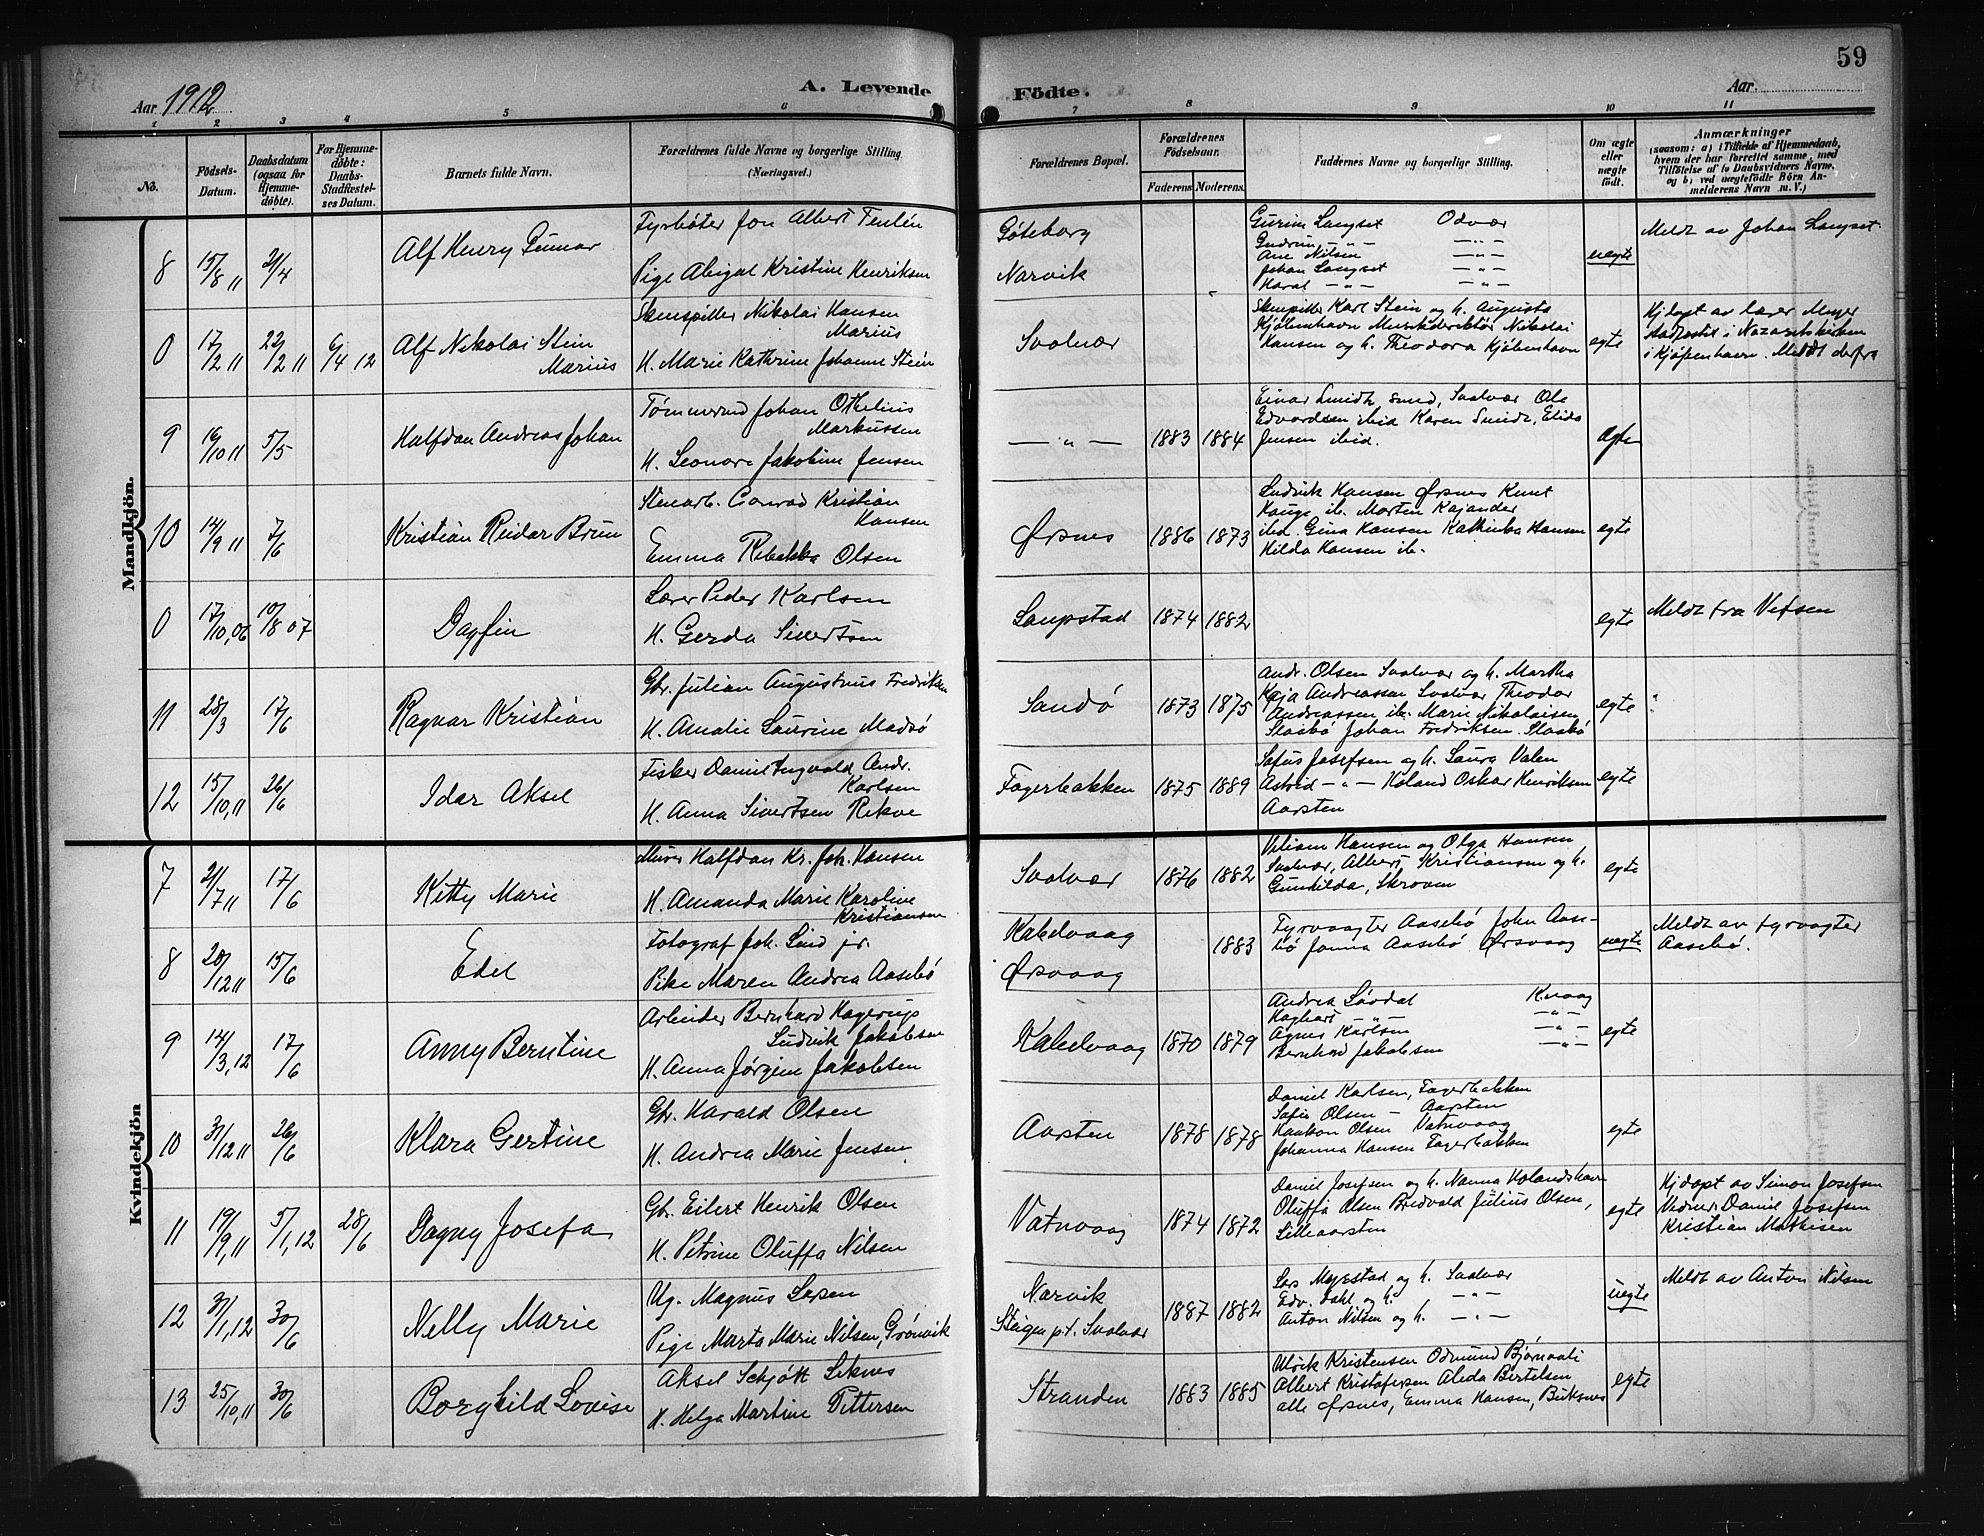 59
Aar 1912
A. Levende
Födte.
Aar
1 2 3 4 5 6 7 8 9 10 11
No.
Födsels-Datum.
Daabsdatum (ogsaa for Hjemme-döbte).
For Hjemme-döbte: Daabs-Stadfæstel-ses Datum.
Barnets fulde Navn.
Forældrenes fulde Navne og borgerlige Stilling. (Næringsvei.)
Forældrenes Bopæl.
Forældrenes Födselsaar.
Faderens. Moderens.
Faddernes Navne og borgerlige Stilling.
Om ægte eller uægte födt.
Anmærkninger
(saasom: a) i Tilfælde af Hjemmedaab, hvem der har forrettet samme, med Tilföielse af to Daabsvidners Navne, og b) ved uægtefödte Börn An-melderens Navn m. V.)
Mandkjön.
8 15/8 11 21/4 Alf Henry Gunnar
Fyrbøter Jon Albert Tenlén
Pige Abigal Kristine Henriksen
Gøteborg
Narvik
Gurine Langset Odvær
Gudrun — " — — " —
Ane Nilsen — " —
Johan Langset — " —
Haral — " — — " —
uegte
Meldt av Johan Langset
0 17/2 11 22/2 11 6/4 12 Alf Nikolai Stein
Marius
Skuespiller Nikolai Hansen
Marius
H. Marie Kathrine Johanne Stein
Svolvær
Skuespiller Karl Stein og h. Augusta
Kjøbenhavn Musikdirektør Nikolai
Hansen og h. Theodora Kjøbenhavn
egte
Hjdøpt av lærer Meyer
stadfæstet i Nazaretskirken
i Kjøpenhavn. Meldt derfra
9 19/10 11 5/5 Halfdan Andreas Johan
Tømmermd Johan Othelius
Markussen
H. Leonore Jakobine Jensen
— " — 1883 1884
Einar Smidt, smed, Svolvær Ole
Edvardsen ibid Karen Smidt, Elida
Jensen ibid.
egte
10 14/9 11 7/6 Kristian Reidar Brun
Stenarb. Conrad Kristian
Hansen
Emma Rebekka Olsen
Ørsnes 1886 1873
Ludvik Hansen Ørsnes Knut
Hauge ib. Morten Kajander
ibid. Gina Hansen Kathinka Hansen
Hilda Hansen ib.
egte
0 17/10, 06 10/8 07 Dagfin
Lærer Peder Karlsen
H. Gerda Sivertsen
Laupstad 1874 1882
egte
Meldt fra Vefsen
11 28/3 17/6 Ragnar Kristian
Gbr. Julian Augustnus Fredriksen
H. Amalie Laurine Madsø
Sandø 1873 1875
Andr. Olsen Svolvær og h. Martha
Kaja Andreassen Svolvær Theodor
Andreassen ib. Marie Nikolaisen
Slaabø Johan Fredriksen Slaabø
egte "
12 15/10, 11 26/6 Idar Aksel
Fisker Daniel Ingvald Andr.
Karlsen
H. Anna Sivertsen Rekve
Fagerbakken 1875 1889
Sofus Josefsen og h. Laura Valen
Astrid — " — Holand Oskar Henriksen
Aarsten
egte
Kvindekjön
7 21/7 11 17/6 Kitty Marie
Murer Halfdan Kr. Joh. Hansen
H. Amanda Marie Karoline
Kristiansen
Svolvær 1876 1882
Viliam Hansen og Olga Hansen
Svolvær, Albert Kristiansen og h.
Gunhilda, Skroven
egte
8 20/12 11 15/6 Edel
Fotograf Joh. Lind jr.
Pike Maren Andrea Aasebø
Kabelvaag
Ørsvaag
1883
Fyrvogter Aasebø John Aase-
bø Janna Aasebø Ørsvaag
uegte
Meldt av fyrvogter
Aasebø.
9 14/3, 12 17/6 Anny Berntine
Arbeider Bernhard Hagerup
Ludvik Jakobsen
H. Anna Jørgine Jakobsen
Kabelvaag 1870 1879
Andrea Løvdal K.vaag
Hagbart — " — — " —
Agnes Karlsen — " —
Bernhard Jakobsen — " —
egte
10 31/12 11 26/6 Klara Gertine
Gbr. Harald Olsen
H. Andrea Marie Jensen
Aarsten 1878 1878
Daniel Karlsen, Fagerbakken
Sofie Olsen — Aarsten
Haakon Olsen Vatnvaag
Johanna Hansen Fagerbakken
egte
11 19/9, 11 5/1, 12 28/6 Dagny Josefa
Gbr. Eilert Henrik Olsen
H. Petrine Oluffa Nilsen
Vatnvaag 1874 1872
Daniel Josefsen og h. Nanna Holandshavn
Oluffa Olsen Bredvold Julius Olsen,
Lilleaarsten
egte
Hjdøpt av Simon Josefsen
Vidner: Daniel Josefsen
Kristian Mathisen
12 31/1, 12 30/6 Nelly Marie
Ug. Magnus Larsen
Pige Marta Marie Nilsen, Grønvik
Narvik
Steigen p.t. Svolvær
1887 1882
Lars Myrstad og h. Svolvær
Edv. Dahl og h. — " —
Anton Nilsen og h. — " —
uegte
Meldt av Anton Nilsen
13 25/10, 11 30/6 Borghild Lovise
Aksel Schjøtt Leknes
H. Helga Martine Pettersen
Stranden 1883 1885
Ulrik Kristensen Odmund Bjørnvali
Albert Kristofersen Aleda Bertelsen
alle Ørsnes, Emma Hansen, Buksnes
egte